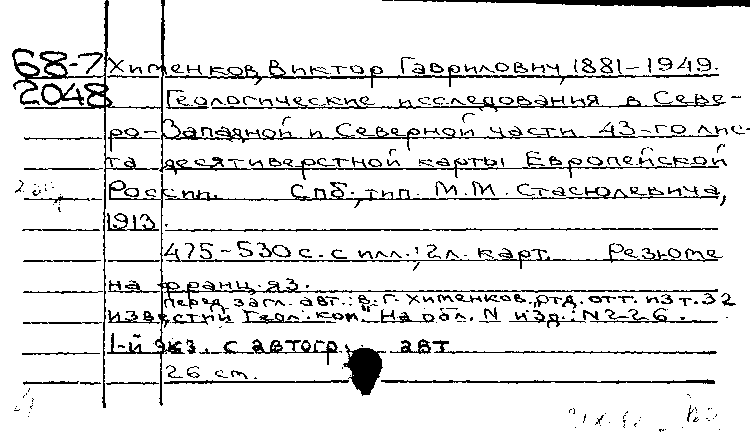 68-7 Хименков, Виктор Гаврилович, 1881-1949.
2048 Геологические исследования в Севе-
ро-Западной и Северной части 43-го лис-
та десятиверстной карты Европейской
России. Спб., тип. М.М. Стасюлевича,
1913.
475-530 с. с илл.; 2 л. карт. Резюме
на франц. яз.
Перед загл. авт.: В. Г. Хименков. Отд. отт. из т. 32
"Известий Геол. ком." На обл. N изд.: N 2-26.
1-й экз. с автогр. авт
26 см.